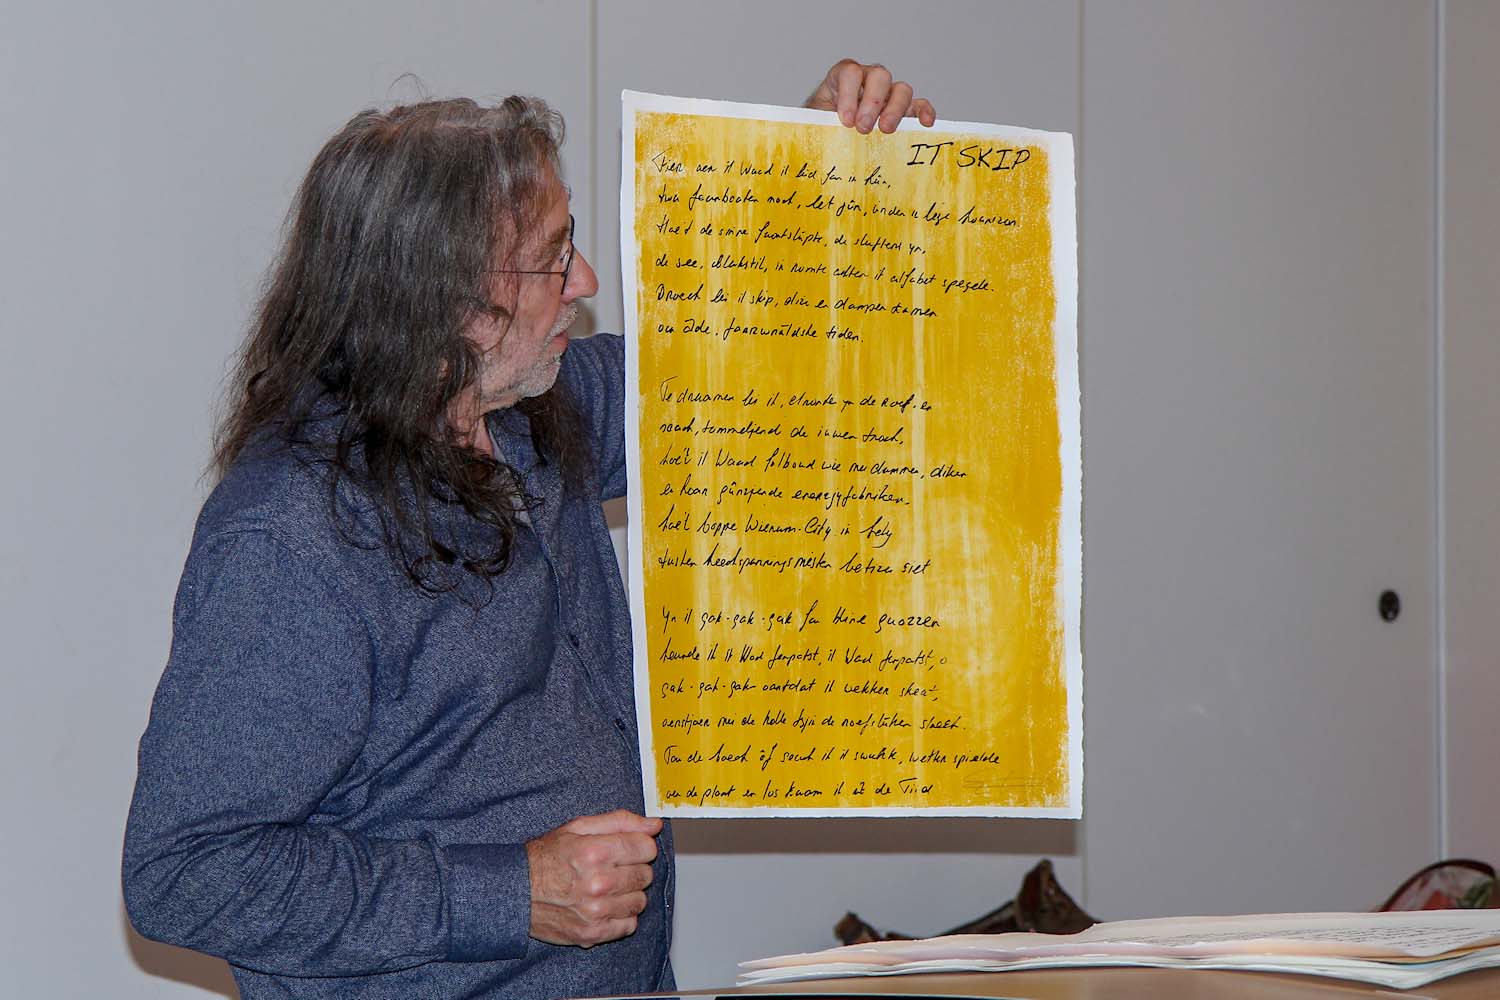 IT SKIP
Fier oer it Waad it lûd fan in hûn,
twa fearboaten noch, let jûn, ûnder in lege hoarizon.
Hoe't de smoe fuotstapte, de slufters yn,
de see, blakstil, in romte achter it alfabet spegele.
Droech lei it skip, dize en dampen kamen
oer âlde, farzwrâldske tiden.
Te dreamen lei it, ik yn de roef, en
seach, tommeljend de iuwen troch,
hoe't it Waad folboud wie mei dammen, diken
en hoar gûnzjende enerzjyfabriken,
hoe't boppe Wierum-City in hely
tusken heechspanningsmêsten betizen siet
Yn it gak-gak-gak fan bline guozzen
hearde ik it Wad ferpatst, it Wad ferpatst, o
gak-gak-gak oantdat ik wekken skeat,
oerstjoer mei de holle tsjin de roefstiken sloech.
Fan de boech ôf seach ik it swurk, wetter spielde
oer de plaat en los kaam ik út de Tiid